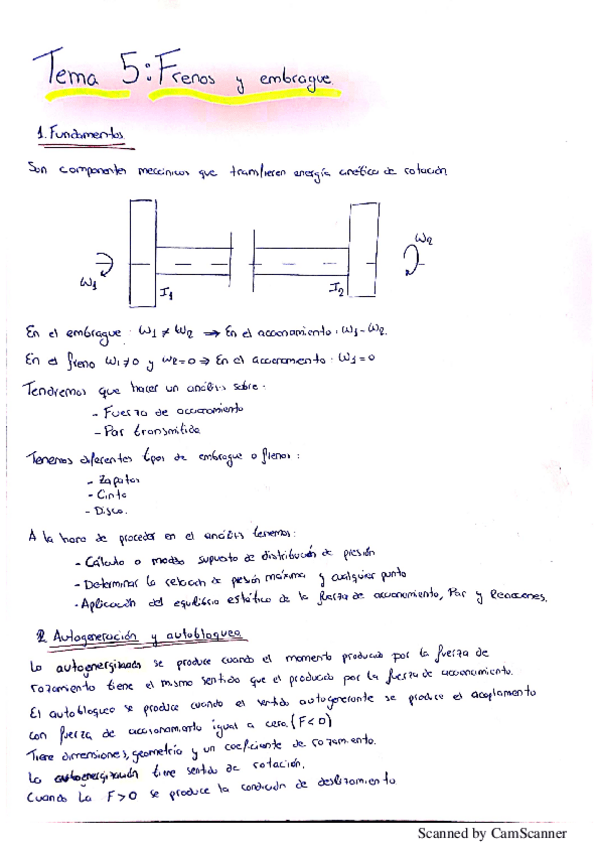 Tema 5: Frenos y embrague
1. Fundamentos
Son componentes mecánicos que transfieren energía cinética de rotación
ω1
I1
I2
ω2
En el embrague : ω1 ≠ ω2 ⇒ En el accionamiento : ω1 - ω2.
En el freno ω1 ≠ 0 y ω2 = 0 ⇒ En el accionamento : ω1 = 0
Tendremos que hacer un análisis sobre :
- Fuerza de accionamiento
- Par transmitido
Tenemos diferentes tipos de embrague o frenos :
- Zapatas
- Cinta
- Disco.
A la hora de proceder en el análisis tenemos:
- Cálculo o modelo supuesto de distribución de presión
- Determinar la relación de presión máxima y cualquier punto
- Aplicación del equilibrio estático de la fuerza de accionamiento, Par y Reacciones.
2. Autogeneración y autobloqueo
La autoenergizada se produce cuando el momento producido por la fuerza de
rozamiento tiene el mismo sentido que el producido por la fuerza de accionamiento.
El autobloqueo se produce cuando el sentido autogenerante se produce el acoplamento
con fuerza de accionamiento igual a cero. (F < 0)
Tiene dimensiones, geometría y un coeficiente de rozamiento.
La autoenergización tiene sentido de rotación.
Cuando la F > 0 se produce la condición de deslizamiento
Scanned by CamScanner